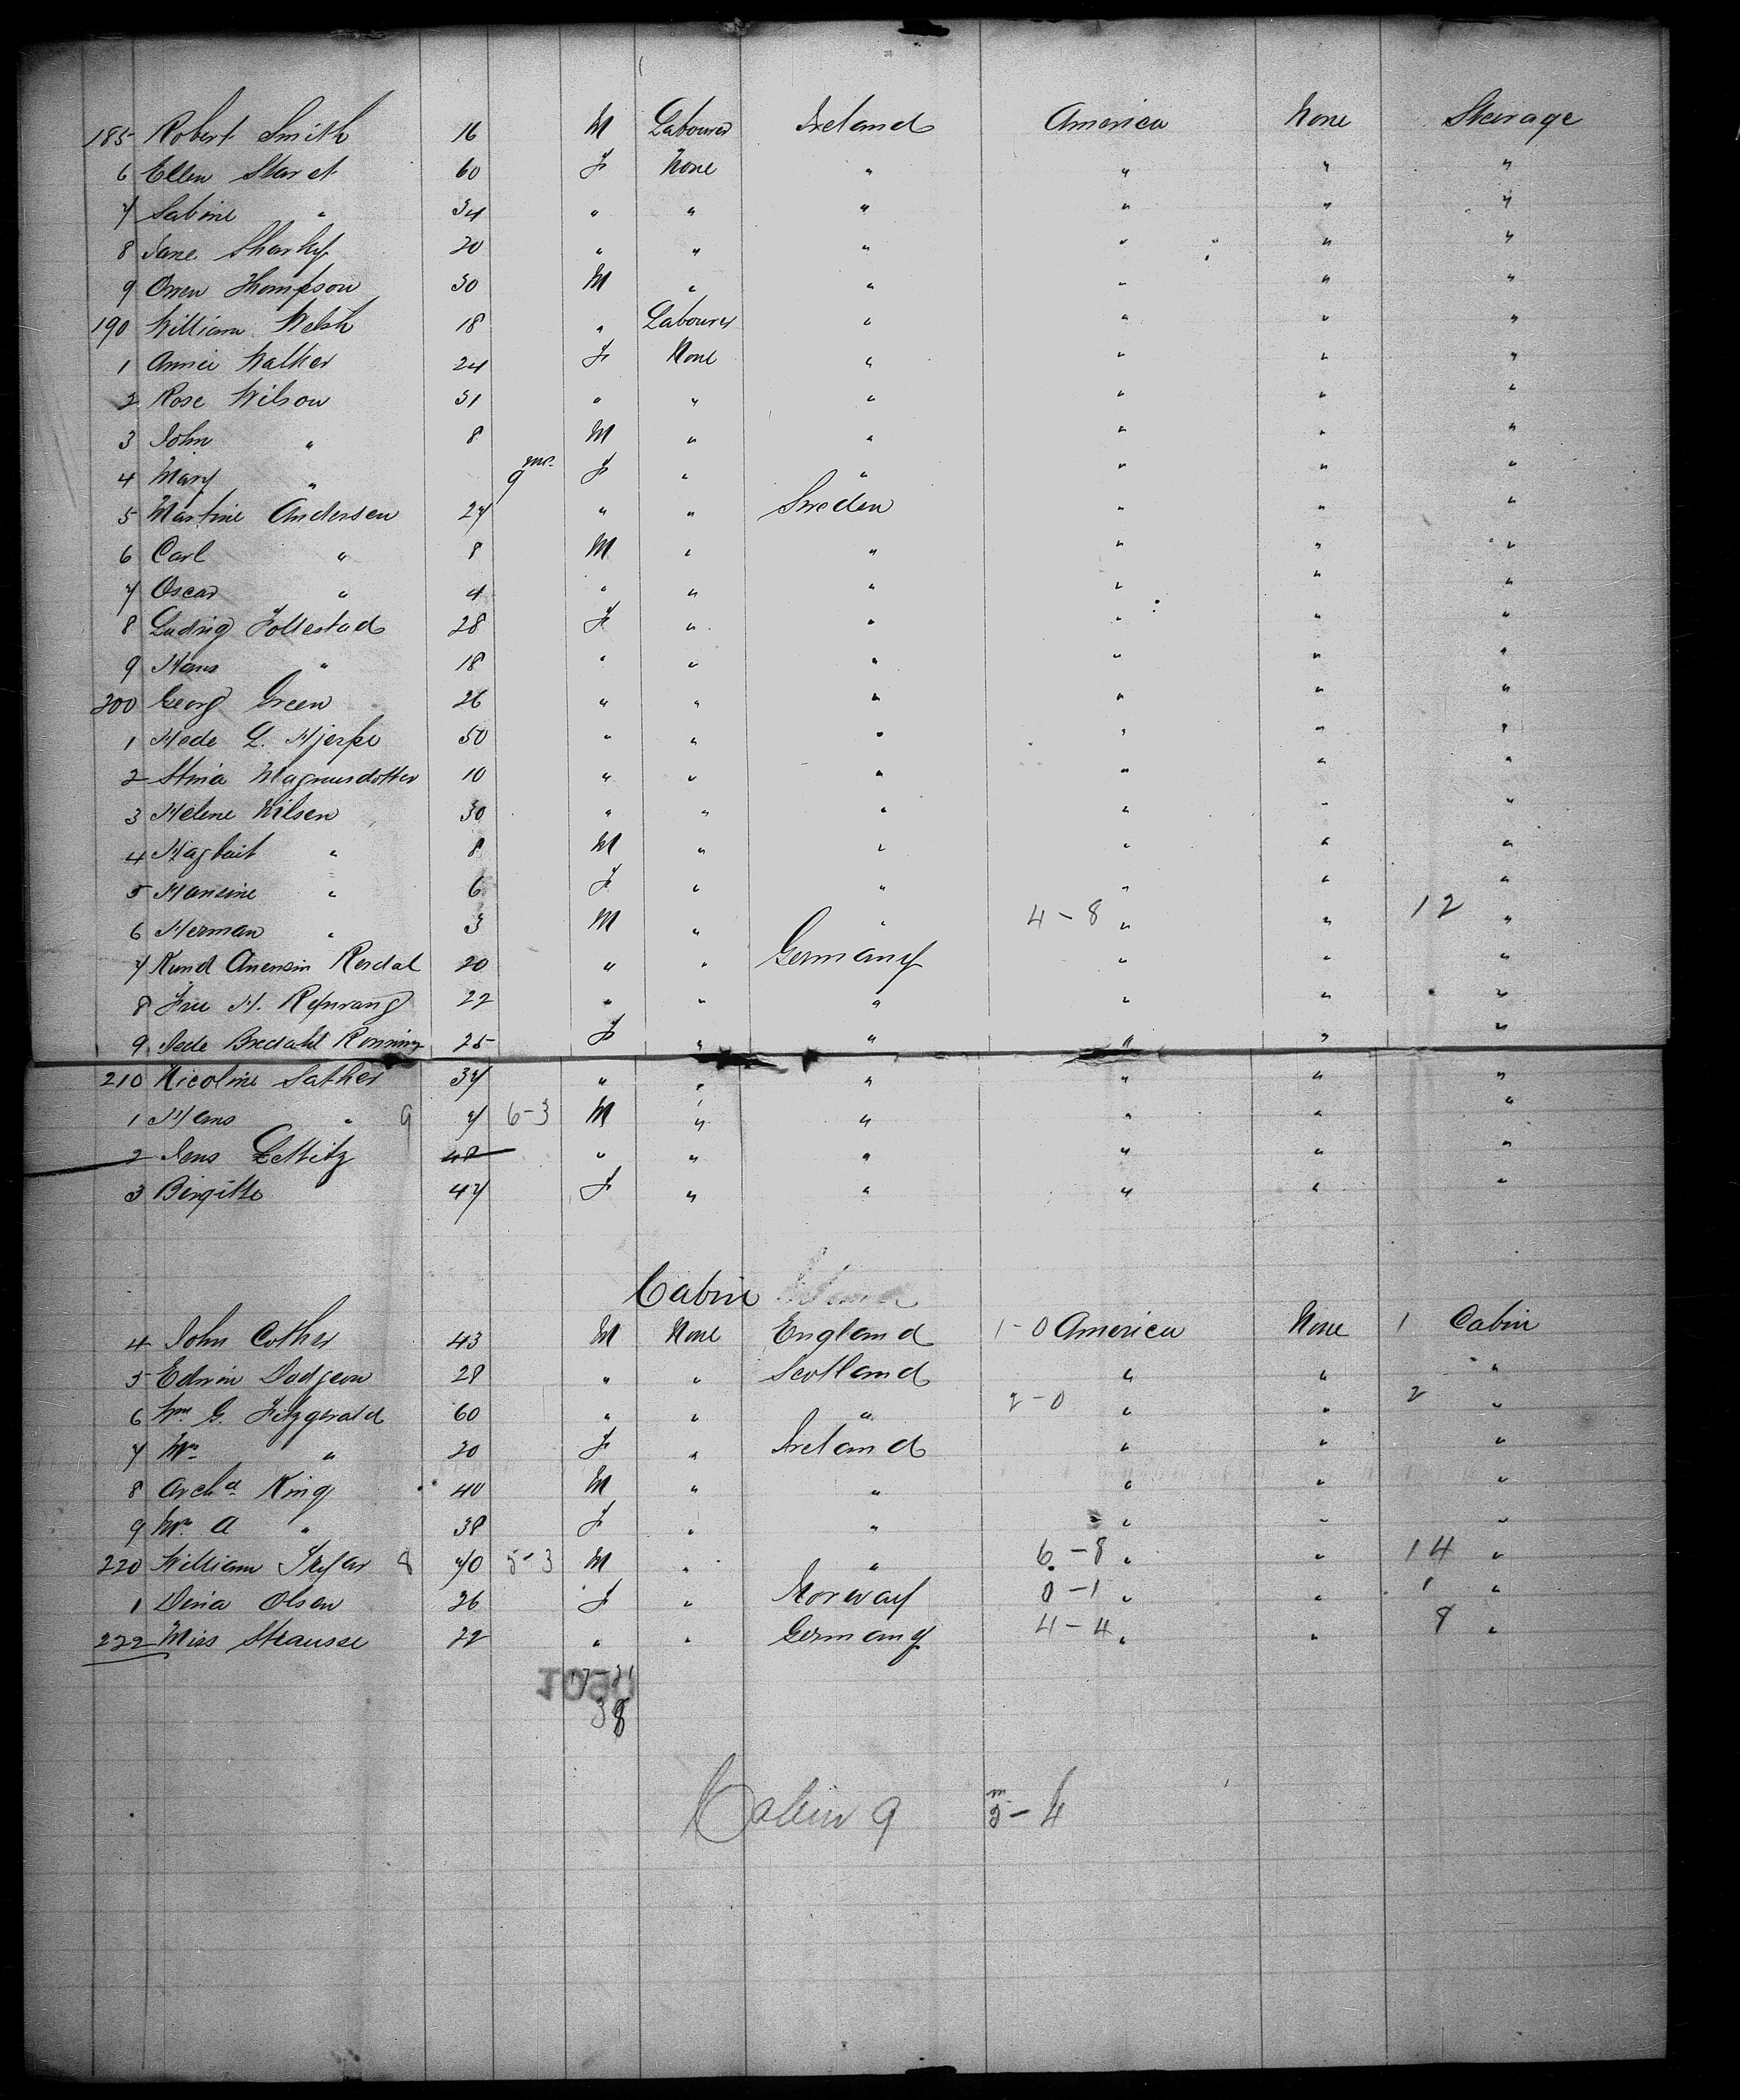 185 Robert Smith 16 M Labourer Ireland America None Steerage
6 Ellen Staret 60 F None " " " "
7 Sabine " 34 " " " " " "
8 Jane Sharky 20 " " " " " "
9 Owen Thompson 30 M " " " " "
190 William Welsh 18 " Labourer " " " "
1 Annie Walker 24 F None " " " "
2 Rose Wilson 31 " " " " " "
3 John " 8 M " " " " "
4 Mary " 9 mo. F " " " " "
5 Martine Andersen 27 " " Sweden " " "
6 Carl " 8 M " " " " "
7 Oscar " 4 " " " " " "
8 Ludvig Follestad 28 F " " " " "
9 Hans " 18 " " " " " "
200 Georg Green 26 " " " " " "
1 Hede L. Hjerpe 50 " " " " " "
2 Stina Magnusdotter 10 " " " " " "
3 Helene Nilsen 30 " " " " " "
4 " 8 M " " " " "
5 Hansine " 6 F " " " " "
6 Herman " 3 M " " 4-8 " " 12 "
7 Knud Rerdal 20 " " Germany " " "
8 H. 22 " " " " " "
9 Bredahl Ronning 25 F " " " " "
210 Nicoline Sather 37 " " " " " "
1 Hans " 9 7 6-3 M " " " " "
2 Jens 48 " " " " " "
3 Birgitte 47 F " " " " "
Cabin
4 John Cother 43 M None England 1-0 America None 1 Cabin
5 Edwin Dodgeon 28 " " Scotland " " "
6 Wm. G. Fitzgerald 60 " " " 2-0 " " 2 "
7 Mrs " 20 F " Ireland " " "
8 Archd. King 40 M " " " " "
9 Mrs A " 38 F " " " " "
220 William 8 70 5-3 M " " 6-8 " " 14 "
1 Dina Olsen 26 F " Norway 0-1 " " 1 "
222 Miss Strausse 22 " " Germany 4-4 " " 8 "
17-21
38
Cabin 9 m 5-4